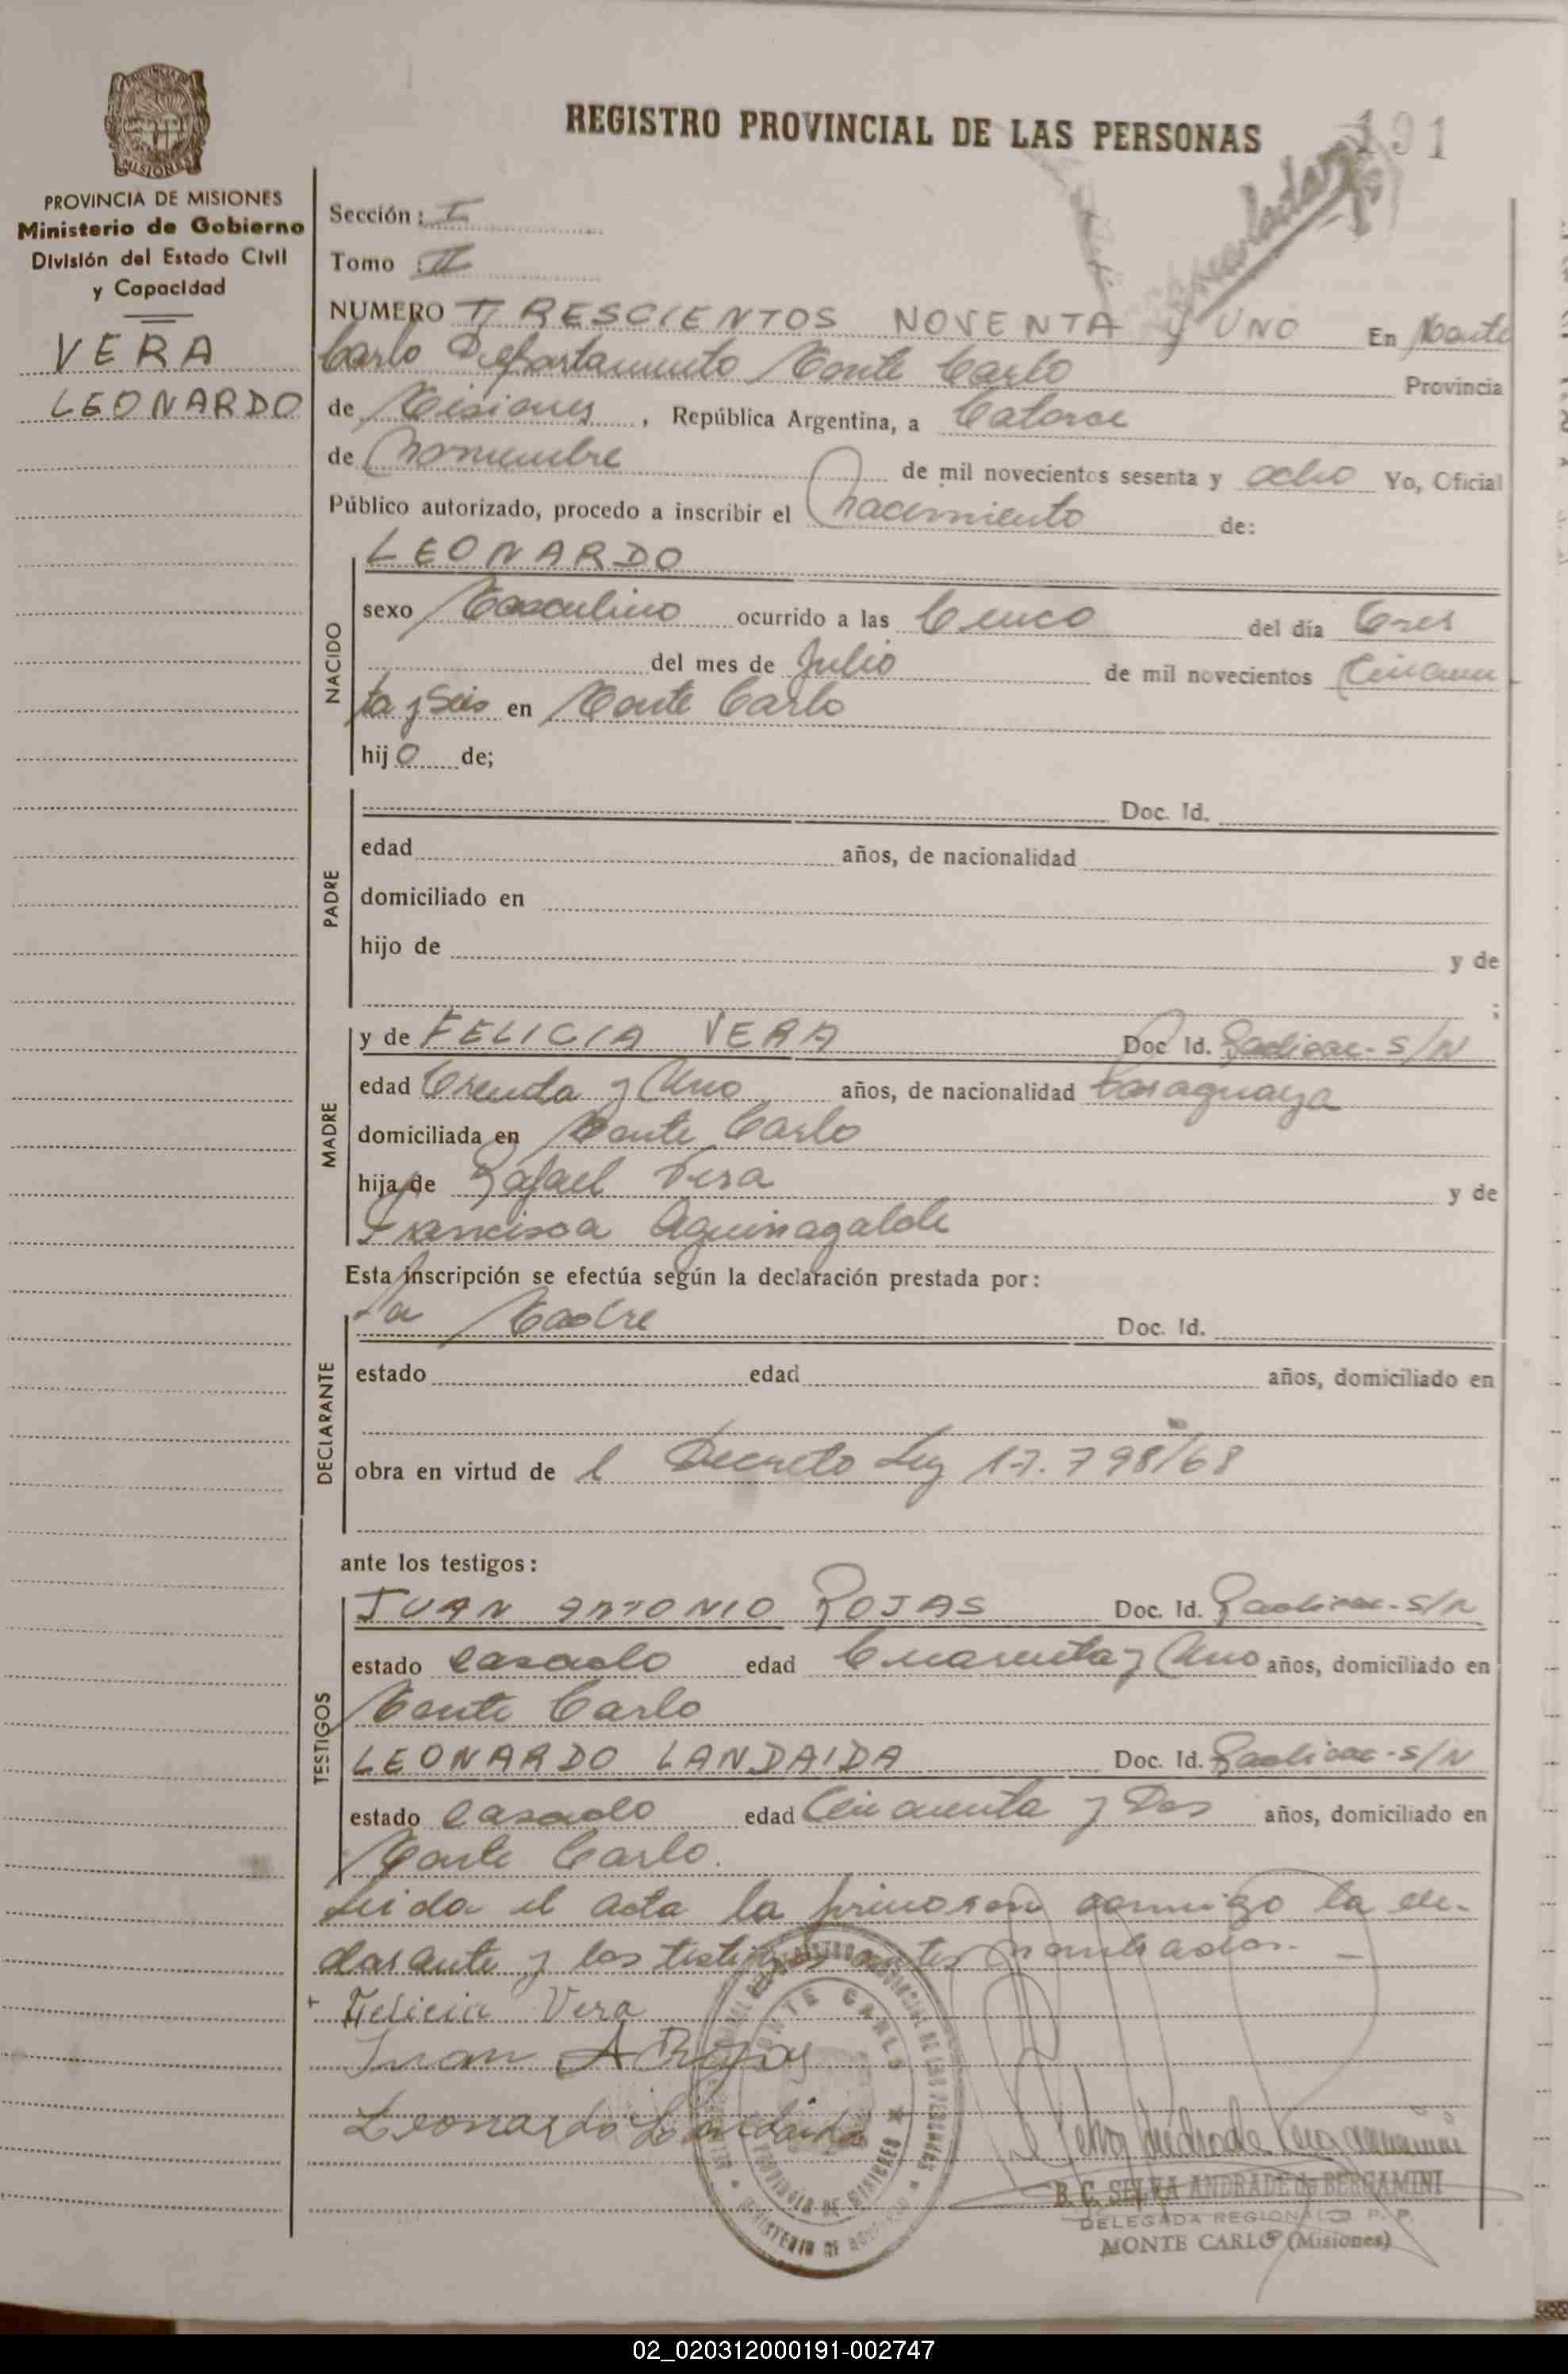 REGISTRO PROVINCIAL DE LAS PERSONAS
191
PROVINCIA DE MISIONES
Ministerio de Gobierno
División del Estado Civil
y Capacidad
VERA
LEONARDO
Sección: I
Tomo : II
NUMERO TRESCIENTOS NOVENTA y UNO En Monte
Carlo Departamento Monte Carlo Provincia
de Misiones, República Argentina, a Catorce
de Noviembre de mil novecientos sesenta y ocho Yo, Oficial
Público autorizado, procedo a inscribir el nacimiento de:
NACIDO
LEONARDO
sexo Masculino ocurrido a las Cinco del día Tres
del mes de Julio de mil novecientos Cincuen
ta y Seis en Monte Carlo
hijo de;
PADRE
Doc. Id.
edad años, de nacionalidad
domiciliado en
hijo de y de
;
MADRE
y de FELICIA VERA Doc Id. Radicac-S/N
edad Treinta y Uno años, de nacionalidad Paraguaya
domiciliada en Monte Carlo
hija de Rafael Vera y de
Francisca Aguinagalde
Esta inscripción se efectúa según la declaración prestada por:
DECLARANTE
La Madre Doc. Id.
estado edad años, domiciliado en
obra en virtud de l Decreto Ley 17.798/68
ante los testigos:
TESTIGOS
JUAN ANTONIO ROJAS Doc. Id. Radicac-S/N
estado Casado edad Cuarenta y Uno años, domiciliado en
Monte Carlo
LEONARDO LANDAIDA Doc. Id. Radicac-S/N
estado Casado edad Cincuenta y Dos años, domiciliado en
Monte Carlo.
Leida el acta la firman conmigo la de-
clarante y los testigos antes nombrados.
Felicia Vera
Juan A Rojas
Leonardo Landaida
MONTE CARLO
PROVINCIA DE MISIONES
B. C. SELVA ANDRADE de BERGAMINI
DELEGADA REGIONAL R. P. P.
MONTE CARLO (Misiones)
02_020312000191-002747